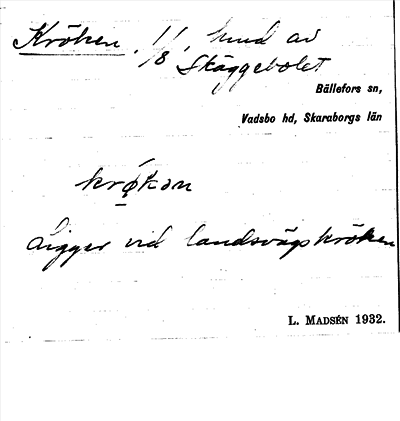 Kröken, 1/8 hmd av
Skäggebolet
Bällefors sn,
Vadsbo hd, Skaraborgs län
krǿ̱kən
Ligger vid landsvägskröken
L. Madsén 1932.